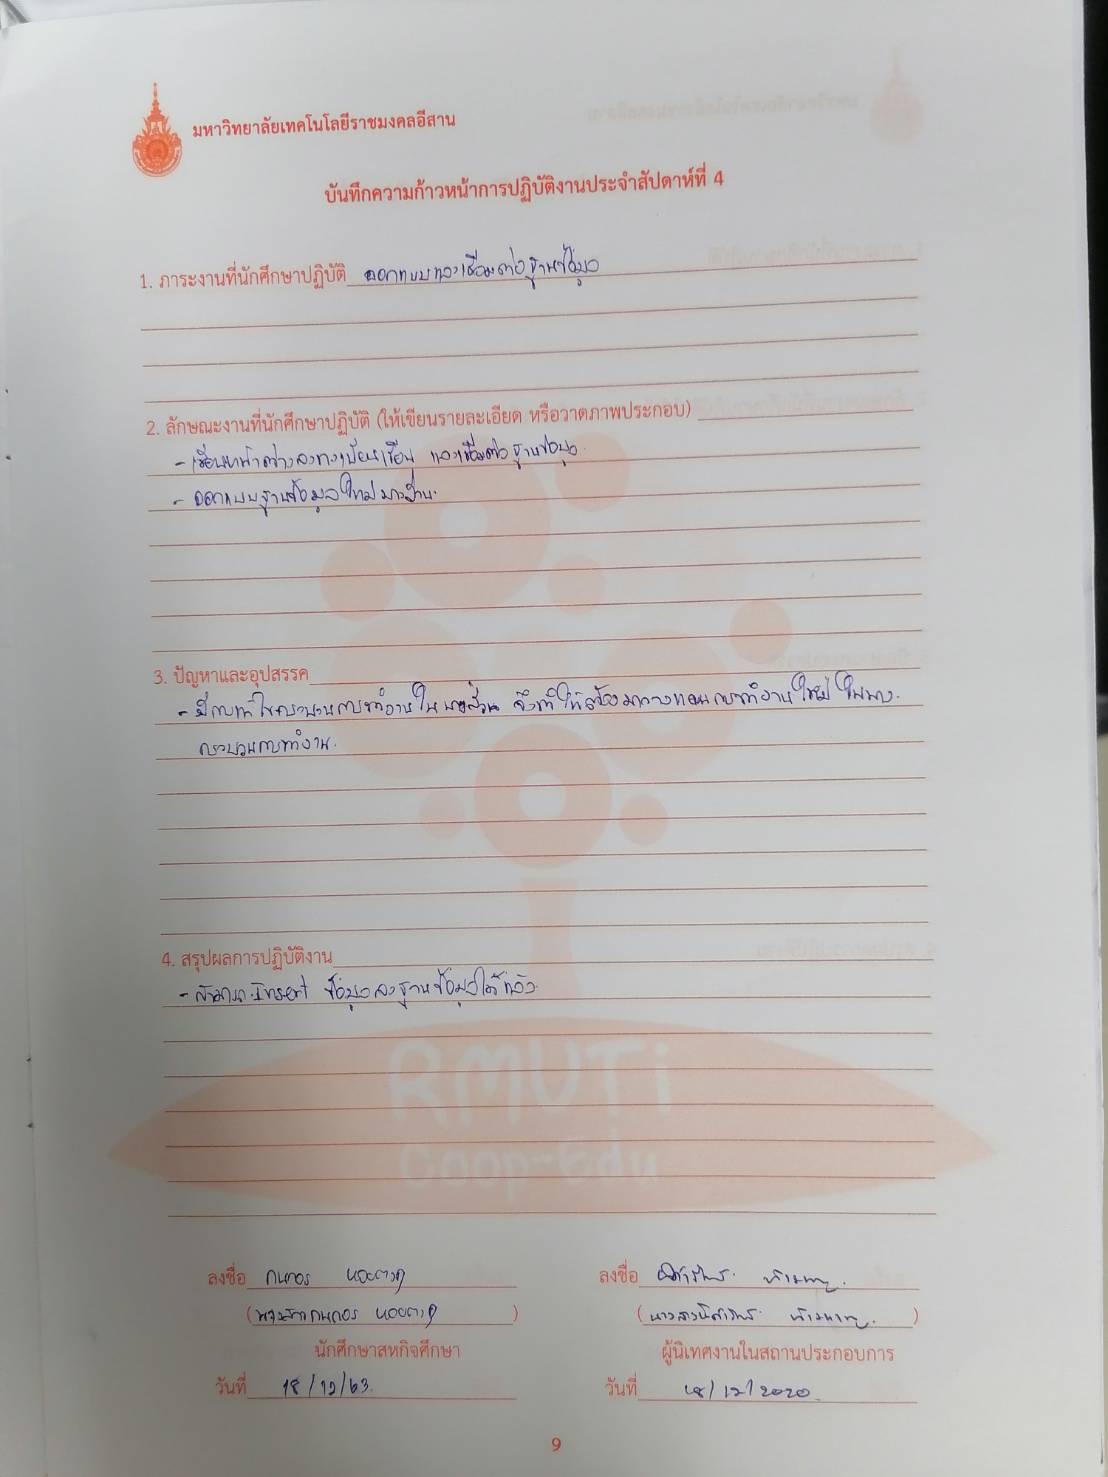 มหาวิทยาลัยเทคโนโลยีราชมงคลอีสาน
บันทึกความก้าวหน้าการปฏิบัติงานประจำสัปดาห์ที่ 4
1. ภาระงานที่นักศึกษาปฏิบัติ ออกแบบและเชื่อมต่อฐานข้อมูล
2. ลักษณะงานที่นักศึกษาปฏิบัติ (ให้เขียนรายละเอียด หรือวาดภาพประกอบ)
- เขียนหน้าต่างลงทะเบียนเรียน และเชื่อมต่อฐานข้อมูล
- ออกแบบฐานข้อมูลใหม่
3. ปัญหาและอุปสรรค
- มีการแก้ไขกระบวนการทำงานในบางส่วน จึงทำให้ต้องมาวางแผนการทำงานใหม่ ในบาง
กระบวนการทำงาน.
4. สรุปผลการปฏิบัติงาน
- สามารถ Insert ข้อมูลลงฐานข้อมูลได้แล้ว
RMUTI
Coop-Edu
ลงชื่อ
ลงชื่อ
นักศึกษาสหกิจศึกษา
ผู้นิเทศงานในสถานประกอบการ
วันที่ 18/12/63
วันที่ 18/12/2020
9